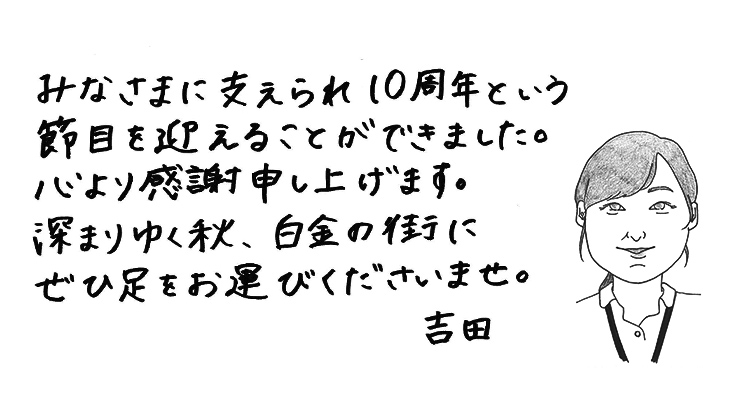 みなさまに支えられ10周年という
節目を迎えることができました。
心より感謝申し上げます。
深まりゆく秋、白金の街に
ぜひ足をお運びくださいませ。
吉田